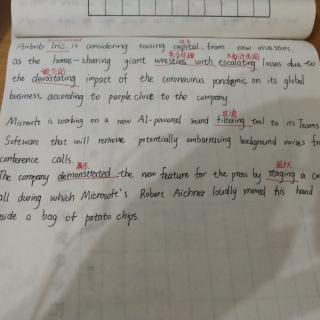 Airbnb Inc. is considering raising capital from new investors,
as the home-sharing giant wrestles with escalating losses due to
the devastating impact of the coronavirus pandemic on its global
business, according to people close to the company.
Microsoft is working on a new AI-powered sound filtering tool to its Teams
Software that will remove potentially embarrassing background noises from
conference calls.
The company demonstrated the new feature for the press by staging a
call during which Microsoft's Robert Aichner loudly moved his hand
inside a bag of potato chips.